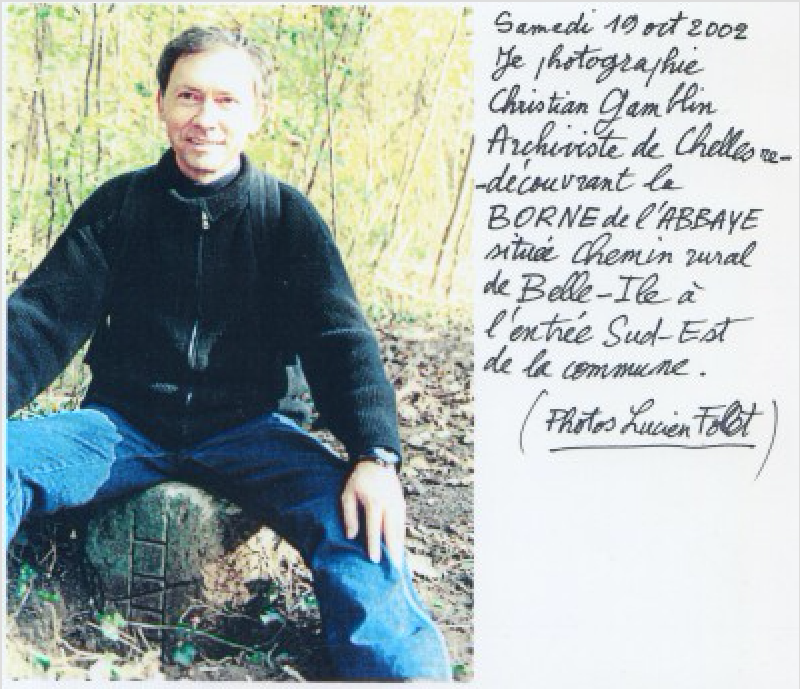 Samedi 19 oct 2002
Je photographie
Christian Gamblin
Archiviste de Chelles re-
-découvrant la
BORNE de l'ABBAYE
située Chemin rural
de Belle-Ile à
l'entrée Sud-Est
de la commune.
(Photos Lucien)